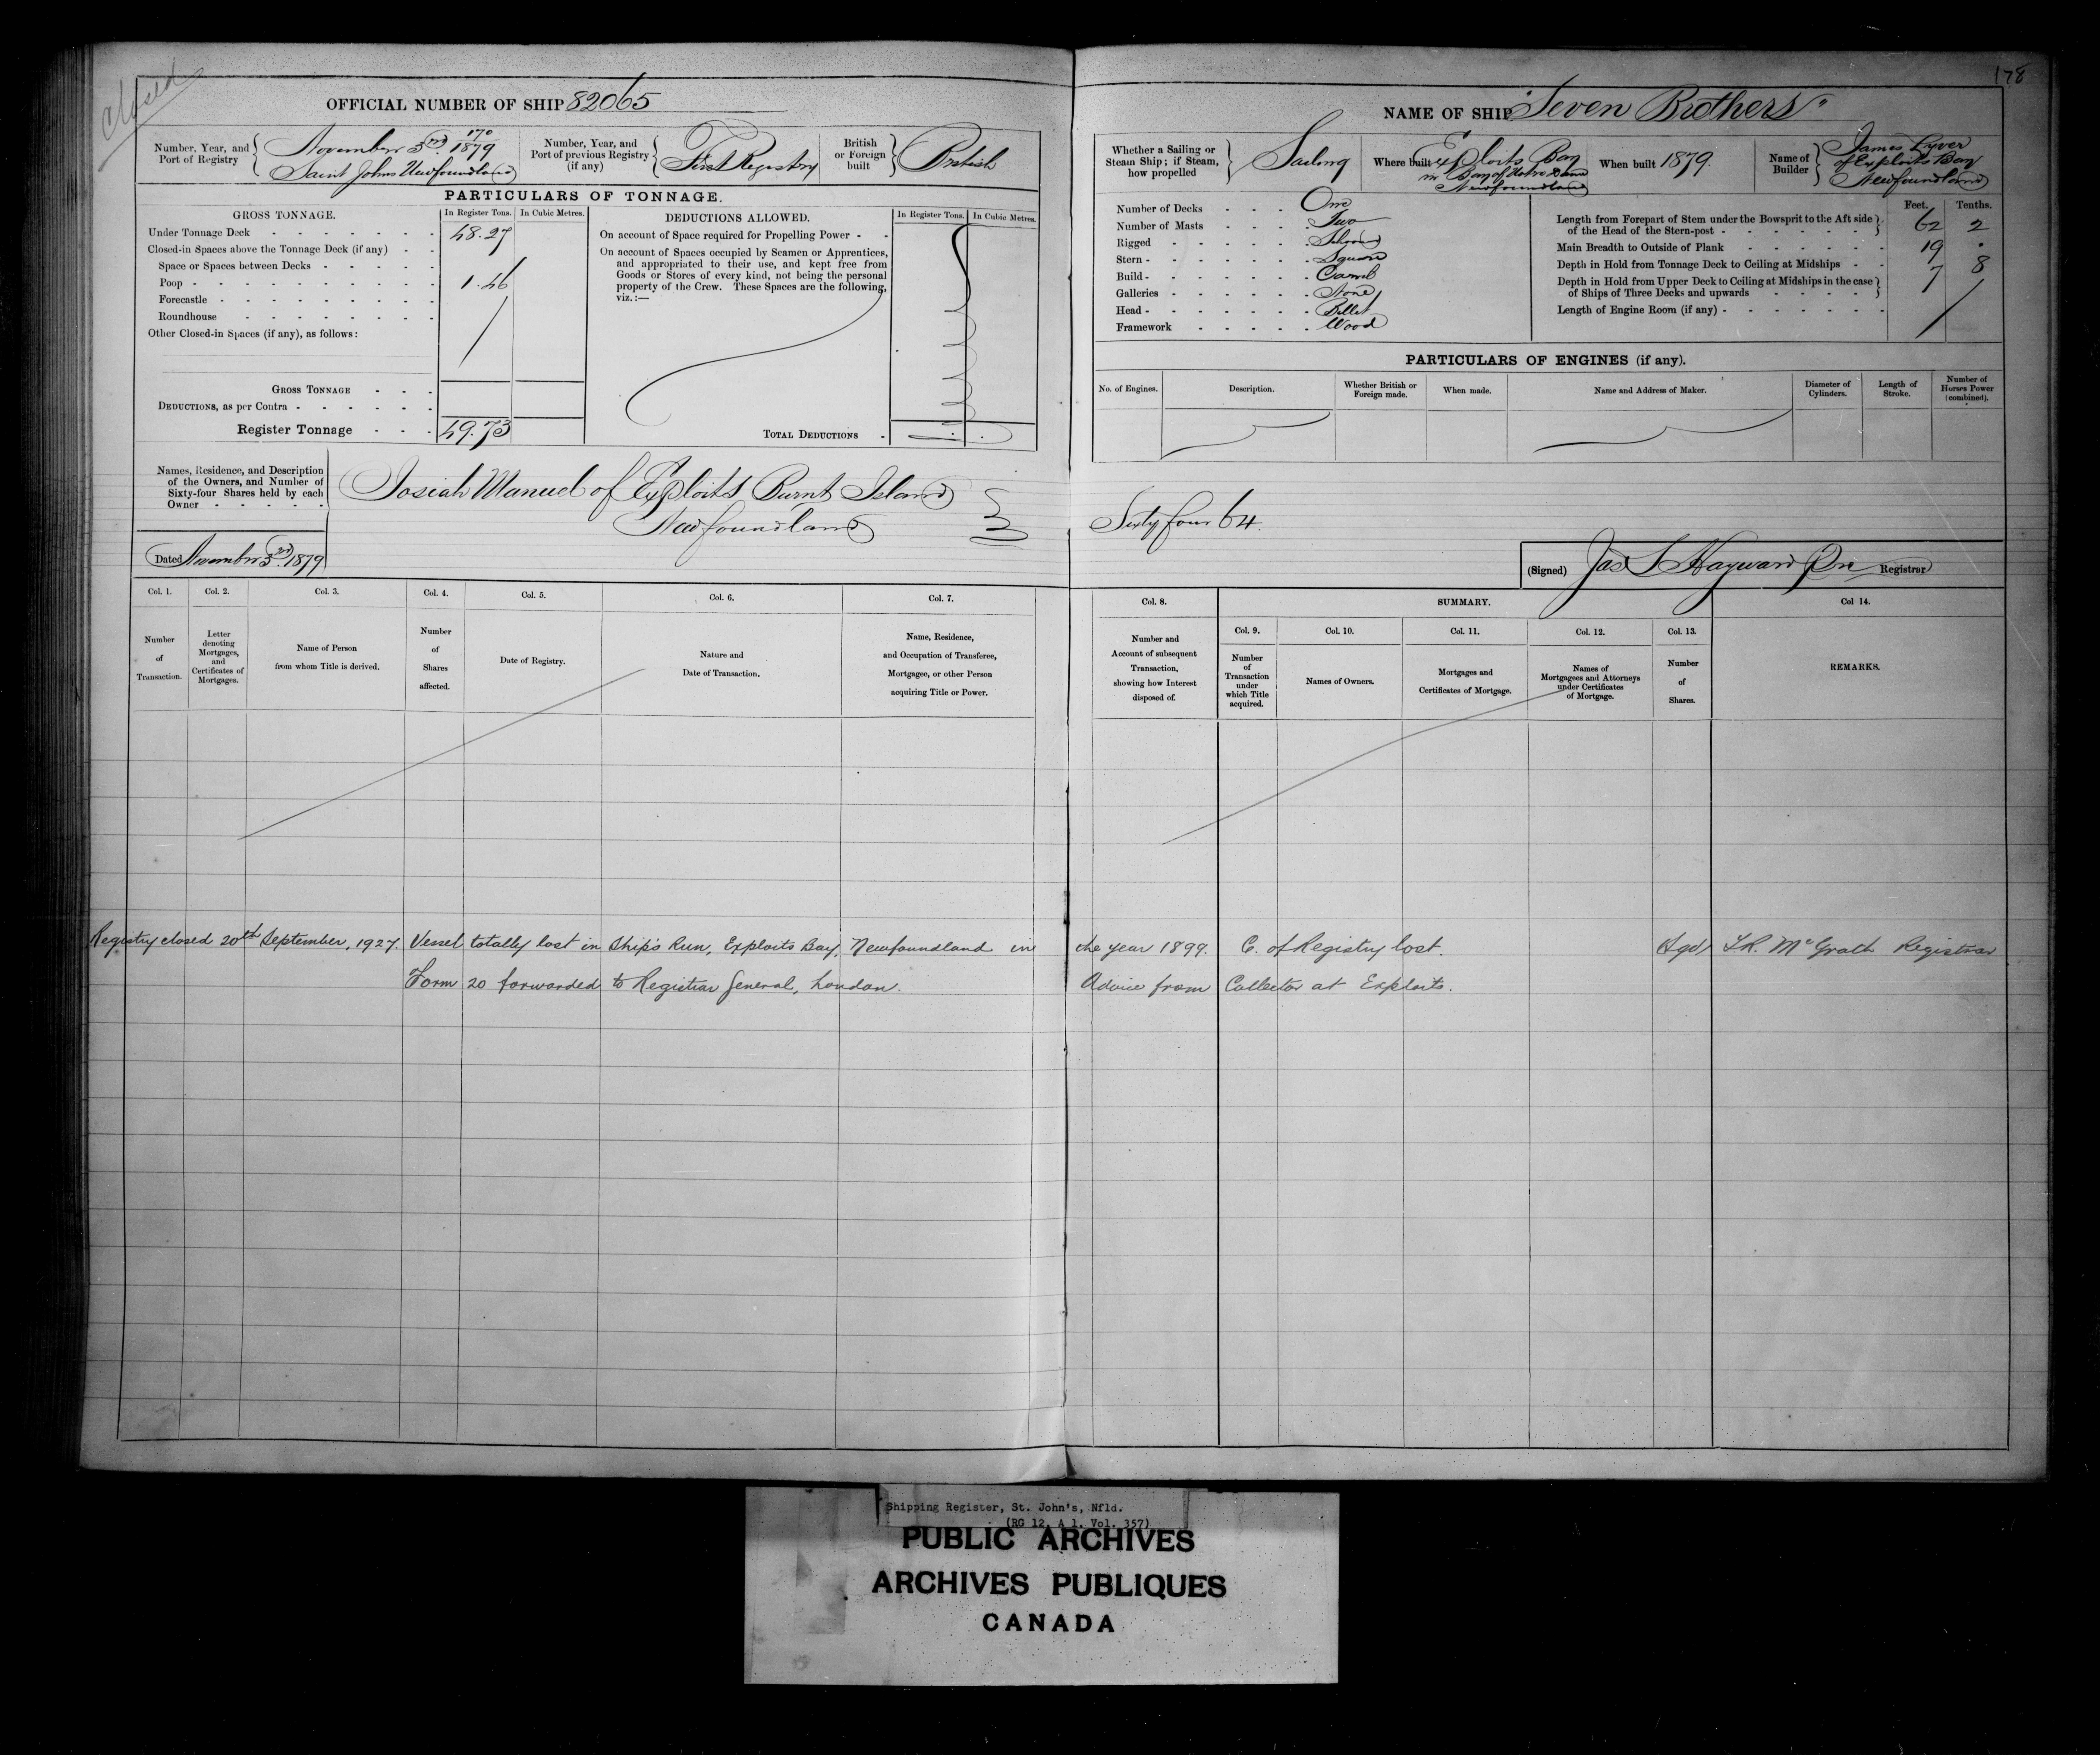 closed
178
OFFICIAL NUMBER OF SHIP 82065
Number, Year, and Port of Registry
170
November 3rd 1879
Saint Johns Newfoundland
Number, Year, and Port of previous Registry (if any)
First Registry
British or Foreign built
British
PARTICULARS OF TONNAGE.
GROSS TONNAGE. In Register Tons. In Cubic Metres.
Under Tonnage Deck 48.27
Closed-in Spaces above the Tonnage Deck (if any)
Space or Spaces between Decks
Poop 1.46
Forecastle
Roundhouse
Other Closed-in Spaces (if any), as follows:
GROSS TONNAGE
DEDUCTIONS, as per Contra
Register Tonnage 49.73
DEDUCTIONS ALLOWED. In Register Tons. In Cubic Metres.
On account of Space required for Propelling Power
On account of Spaces occupied by Seamen or Apprentices,
and appropriated to their use, and kept free from
Goods or Stores of every kind, not being the personal
property of the Crew. These Spaces are the following,
viz.:—
TOTAL DEDUCTIONS
Names, Residence, and Description
of the Owners, and Number of
Sixty-four Shares held by each
Owner
Josiah Manuel of Exploits Burnt Island
Newfoundland
Dated November 3rd 1879
NAME OF SHIP "Seven Brothers"
Whether a Sailing or Steam Ship; if Steam, how propelled
Sailing
Where built
Exploits Bay
in Bay of Notre Dame
Newfoundland
When built 1879.
Name of Builder
James Lyver
of Exploits Bay
Newfoundland
Number of Decks One
Number of Masts Two
Rigged Schooner
Stern Square
Build Carvel
Galleries None
Head Billet
Framework Wood
Feet. Tenths.
Length from Forepart of Stem under the Bowsprit to the Aft side
of the Head of the Stern-post 62 2
Main Breadth to Outside of Plank 19 .
Depth in Hold from Tonnage Deck to Ceiling at Midships 7 8
Depth in Hold from Upper Deck to Ceiling at Midships in the case
of Ships of Three Decks and upwards
Length of Engine Room (if any)
PARTICULARS OF ENGINES (if any).
No. of Engines. Description. Whether British or Foreign made. When made. Name and Address of Maker. Diameter of Cylinders. Length of Stroke. Number of Horses Power (combined).
Sixty four 64.
(Signed) Jas S Hayward Registrar
Col. 1. Col. 2. Col. 3. Col. 4. Col. 5. Col. 6. Col. 7.
Number of Transaction.
Letter denoting Mortgages, and Certificates of Mortgages.
Name of Person from whom Title is derived.
Number of Shares affected.
Date of Registry.
Nature and Date of Transaction.
Name, Residence, and Occupation of Transferee, Mortgagee, or other Person acquiring Title or Power.
Col. 8. SUMMARY. Col 14.
Col. 9. Col. 10. Col. 11. Col. 12. Col. 13.
Number and Account of subsequent Transaction, showing how Interest disposed of.
Number of Transaction under which Title acquired.
Names of Owners.
Mortgages and Certificates of Mortgage.
Names of Mortgagees and Attorneys under Certificates of Mortgage.
Number of Shares.
REMARKS.
Registry closed 20th September, 1927. Vessel totally lost in Ship's Run, Exploits Bay, Newfoundland in the year 1899. C. of Registry lost. (Sgd) McGrath Registrar
Form 20 forwarded to Registrar General, London. Advice from Collector at Exploits.
Shipping Register, St. John's, Nfld.
(RG 12, A 1, Vol. 357)
PUBLIC ARCHIVES
ARCHIVES PUBLIQUES
CANADA